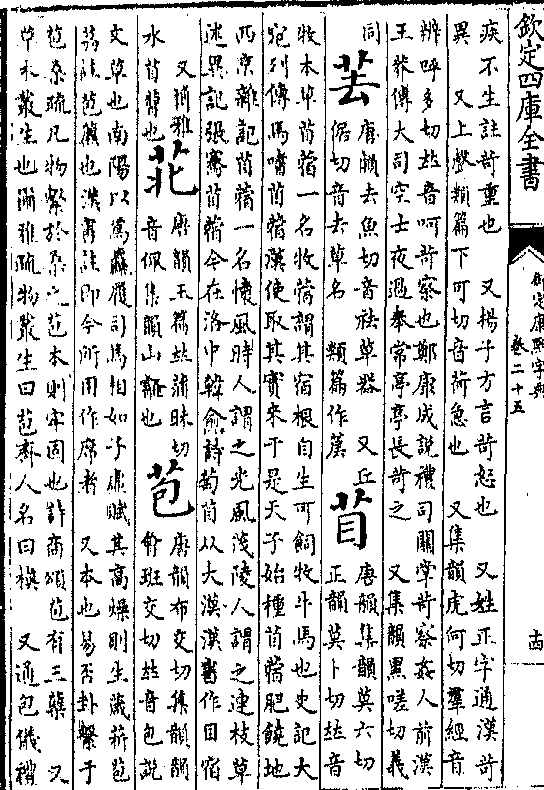 欽定四庫全書
御定康熙字典
卷二十五
十四
疾不生註苛重也　又揚子方言苛怒也　又姓正字通漢苛
異　又上聲類篇下可切音荷急也　又集韻虎何切羣經音
辨呼多切𠀤音呵苛察也鄭康成說禮司關掌苛察姦人前漢
王莽傳大司空士夜過奉常亭亭長苛之　又集韻黑嗟切義
同
唐韻去魚切音祛草器　又丘
倨切音去草名　類篇作
苜
唐韻集韻莫六切
正韻莫卜切𠀤音
牧本草苜蓿一名牧蓿謂其宿根自生可飼牧牛馬也史記大
宛列傳馬嗜苜蓿漢使取其實來于是天子始種苜蓿肥饒地
西京雜記苜蓿一名懷風時人謂之光風茂陵人謂之連枝草
述異記張騫苜蓿今在洛中韓愈詩萄苜從大漢漢書作目宿
又爾雅
水苜蓿也
苝
唐韻玉篇𠀤蒲昧切
音佩集韻山韰也
苞
唐韻布交切集韻韻
會班交切𠀤音包說
文草也南陽以爲麤履司馬相如子虛賦其高燥則生葴菥苞
荔註苞藨也漢書註即今所用作席者　又本也易否卦繫于
苞桑疏凡物繫於桑之苞本則牢固也詩商頌苞有三蘖　又
草木叢生也爾雅疏物叢生曰苞齊人名曰稹　又通包儀禮